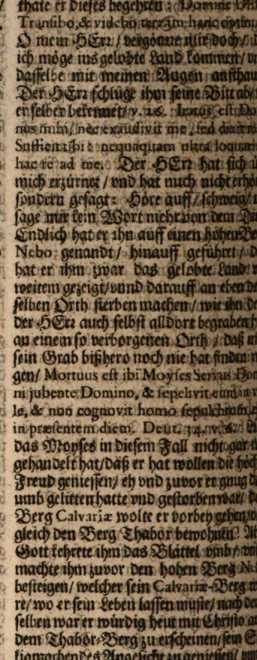 thäte er dieses begehren:
Transibo, & videbo terram hanc
O mein HErr / vergönne mir doch /
ich möge ins gelobte Land kommen /
dasselbe mit meinen Augen
Der HErr schluge ihm seine Bitt ab /
er selber bekennet / v. 26. Iratus est
nus mihi, nec exaudivit me, sed
Sufficit tibi: nequaquam ultra
hac re ad me. Der HErr hat sich
mich erzürnet / vnd hat mich nicht
sondern gesagt: Höre auff / schweig /
sage mir kein Wort mehr von dem
Endlich hat er ihn auff einen höhen
Nebo genandt / hinauff geführt /
hat er ihm zwar das gelobte Land
weitem gezeigt / vnd darauff an eben
selben Orth sterben machen / wie ihn
der HErr auch selbst alldort begraben
an einem so verborgenen Orth / daß
sein Grab bißhero noch nie hat finden
gen / Mortuus est ibi Moyses Servus
ni jubente Domino, & sepelivit
le, & non cognovit homo sepulchrum
in præsentem diem. Deut. 34.
das Moyses in diesem Fall nicht gar
gehandelt hat / daß er hat wollen die
Freud geniessen / eh vnd zuvor er gnug
umb gelitten hatte vnd gestorben war /
Berg Calvariæ wolte er vorbey
gleich den Berg Thabor bewohnen
Gott kehrete ihm das Blättel umb /
machte ihm zuvor den hohen Berg
besteigen / welcher sein Calvariæ-Berg
re / wo er sein Leben lassen muste / nach
selben war er würdig heut mit Christo
dem Thabor-Berg zu erscheinen /
Angesicht zu geniessen /